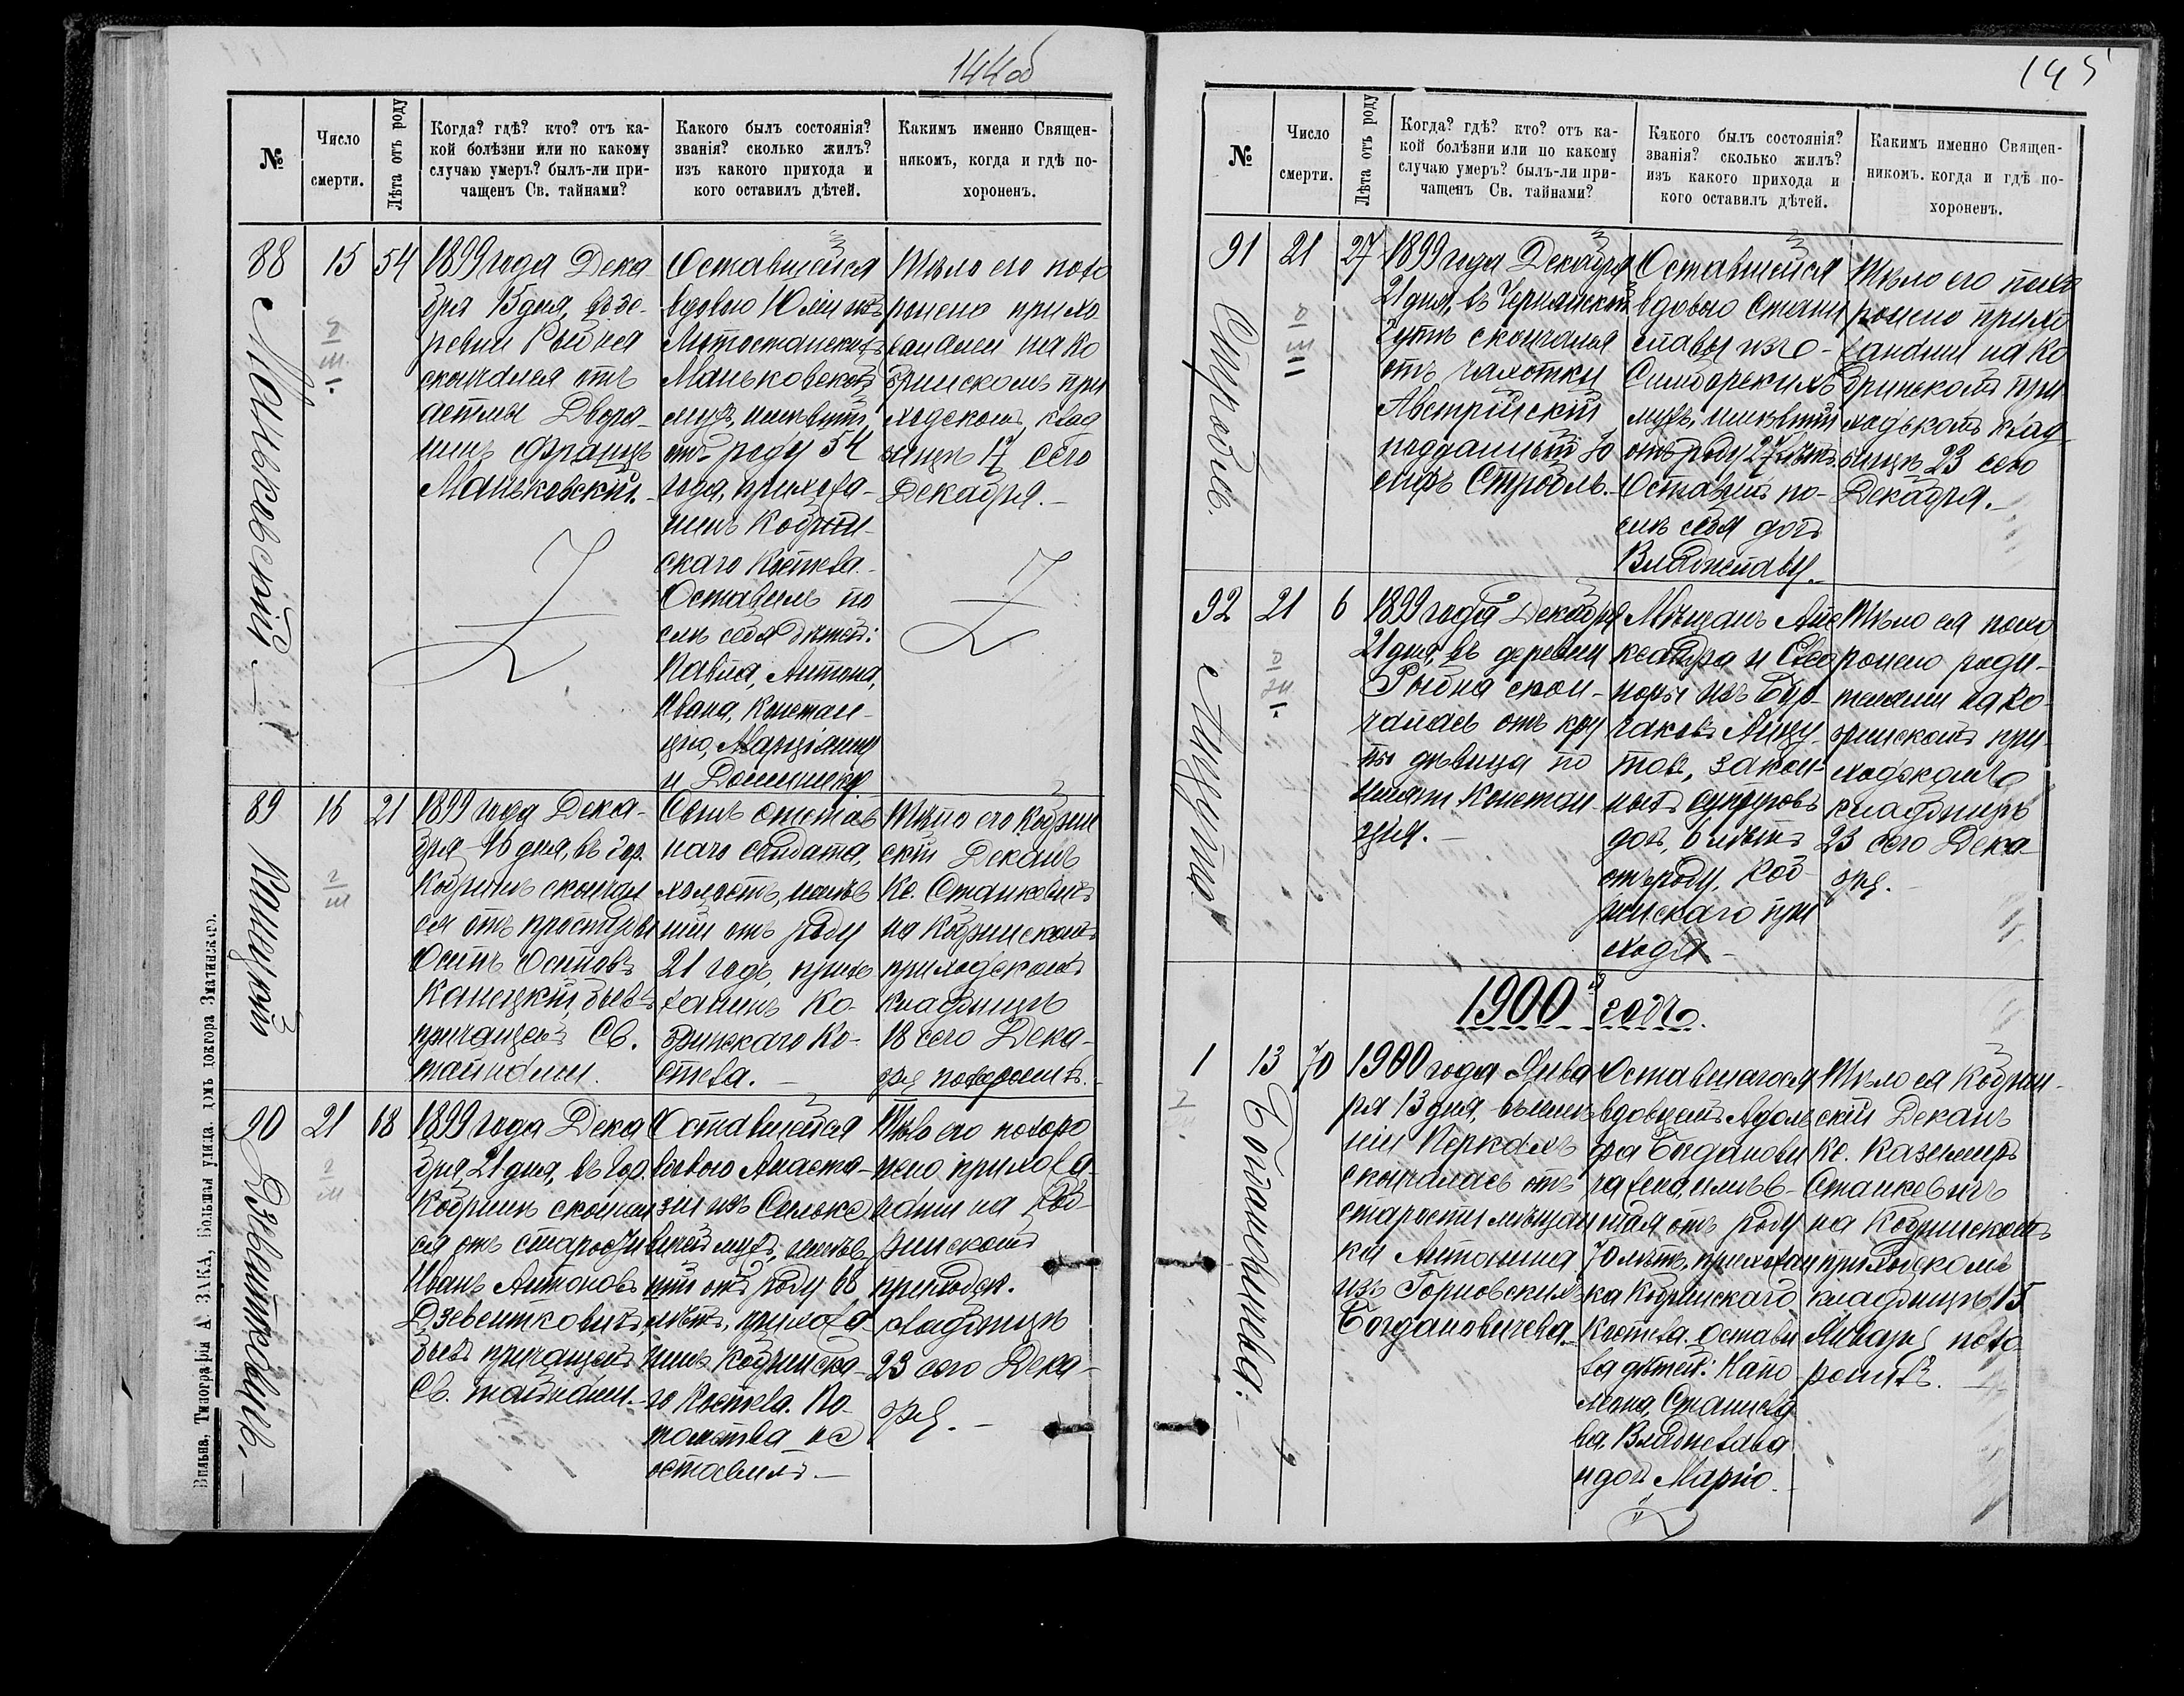 144об
№
Число
смерти.
Лѣта отъ роду
Когда? гдѣ? кто? отъ ка-
кой болѣзни или по какому
случаю умеръ? былъ-ли при-
чащенъ Св. тайнами?
Какого былъ состоянія?
званія? сколько жилъ?
изъ какого прихода и
кого оставилъ дѣтей.
Какимъ именно Священ-
никомъ, когда и гдѣ по-
хороненъ.
88
Маньковскій.
15
54
1899 года Дека
бря 15 дня, въ де-
ревни Рыбна
скончался отъ
астмы Дворя-
нинъ Францъ
Маньковскій.
Оставшейся
вдовою Юліи изъ
Маньковскій
мужъ, имѣвшій
отъ роду 54
года, прихожа-
нинъ Кобрин-
скаго Костела.
Оставилъ по
слѣ себя дѣтей:
Павла, Антона,
Ивана, Констан-
цію, Марціанну
и Доминику
Тѣло его похо
ронено прихо-
жанами на Ко
бринскомъ при
ходскомъ клад
бищѣ 17 сего
Декабря.
89
Канецкій
16
21
1899 года Дека-
бря 16 дня, въ гор.
Кобринѣ скончал
ся отъ простуды
Осипъ Осиповъ
Канецкій, бывъ
причащенъ Св.
тайнами.
Сынъ отстав
наго солдата,
холостъ, имѣв
шій отъ роду
21 годъ, прихо
жанинъ Ко-
бринскаго Ко-
стела.
Тѣло его Кобрин
скій Деканъ
Кс. Станкевичъ
на Кобринскомъ
приходскомъ
кладбищѣ
18 сего Дека-
бря похоронилъ.
90
Дзевентковичъ.
21
68
1899 года Дека
бря 21 дня, въ гор.
Кобринѣ скончал
ся отъ старости
Иванъ Антоновъ
Дзевентковичъ,
бывъ причащенъ
Св. тайнами.
Оставшейся
вдовою Анаста-
зіи изъ
мужъ, имѣв
шій отъ роду 68
лѣтъ, прихожа-
нинъ Кобринска-
го Костела. По-
томства не
оставилъ
Тѣло его похоро
нено прихожа-
нами на Коб-
ринскомъ
приходск.
кладбищѣ
23 сего Дека-
бря.
Вильна, Типографія А. ЗАКА, Большая улица, домъ доктора Зматинскаго.
145
№
Число
смерти.
Лѣта отъ роду
Когда? гдѣ? кто? отъ ка-
кой болѣзни или по какому
случаю умеръ? былъ-ли при-
чащенъ Св. тайнами?
Какого былъ состоянія?
званія? сколько жилъ?
изъ какого прихода и
кого оставилъ дѣтей.
Какимъ именно Священ-
никомъ. когда и гдѣ по-
хороненъ.
91
Стробль.
21
27
1899 года Декабря
21 дня, въ
скончался
отъ чахотки
Австрійскій
подданный Іо
сифъ Стробль.
Оставшейся
вдовою
славы изъ
мужъ, имѣвшій
отъ роду 27 лѣтъ.
Оставилъ по-
слѣ себя дочь
Владиславу.
Тѣло его похо
ронено прихо
жанами на Ко
бринскомъ при
ходскомъ клад
бищѣ 23 сего
Декабря.
92
21
6
1899 года Декабря
21 дня, въ деревни
Рыбна скон-
чалась отъ кру
пы дѣвица по
имени Констан
ція.
Мѣщанъ Але
ксандра и Элео
норы изъ Бур-
чаковъ
закон-
ныхъ супруговъ
дочь, 6 лѣтъ
отъ роду, Коб-
ринскаго при
хода
Тѣло ея похо
ронено роди-
телями на Ко-
бринскомъ при-
ходскомъ
кладбищѣ
23 сего Дека
бря.
1900 й годъ.
1
Богдановичева.
13
70
1900 года Янва
ря 13 дня, въ имѣ
ніи Перкахъ
скончалась отъ
старости мѣщан
ка Антонина
изъ Горновскихъ
Богдановичева.
Оставшагося
вдовцемъ Адоль
фа Богданови
ча жена, имѣв-
шая отъ роду
70 лѣтъ, прихожан
ка Кобринскаго
Костела. Остави
ла дѣтей: Напо
леона, Станисла
ва, Владислава
и дочь Марію.
Тѣло ея Кобрин-
скій Деканъ
Кс. Казимиръ
Станкевичъ
на Кобринскомъ
приходскомъ
кладбищѣ 15
Января похо
ронилъ.